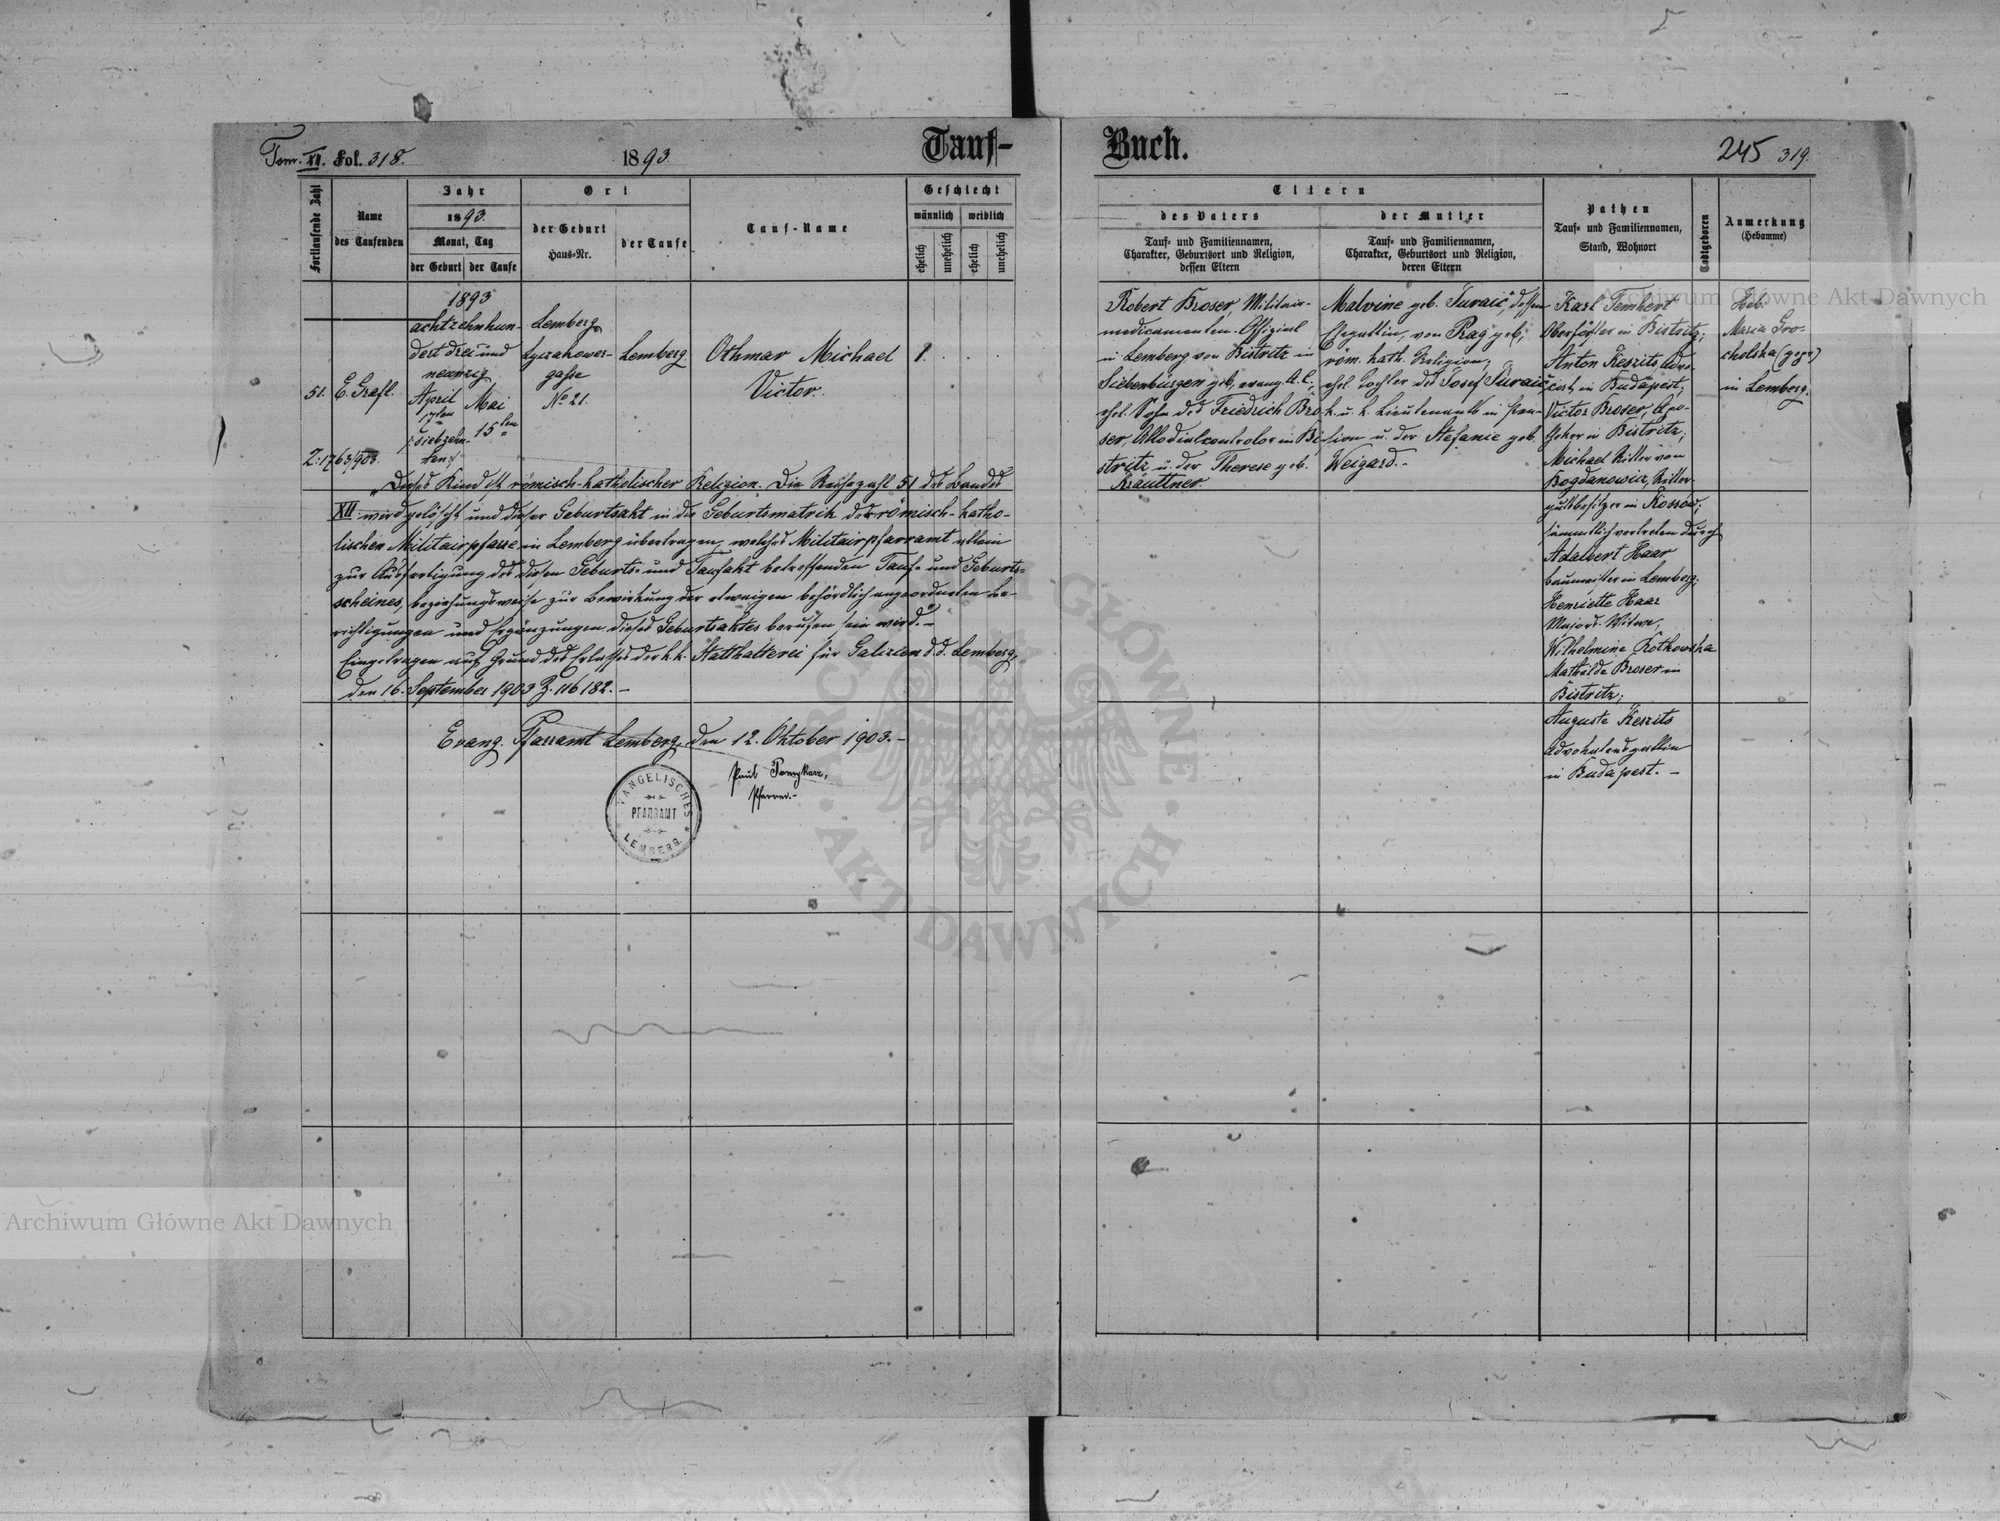 Tom. XII. Fol. 318.
1893
Tauf-
Buch.
245 319.
Fortlaufende Zahl
Name
des Taufenden
Jahr
1893.
Monat, Tag
der Geburt
der Taufe
Ort
der Geburt
Haus-Nr.
der Taufe
Tauf-Name
Geschlecht
männlich
weiblich
ehelich
unehelich
ehelich
unehelich
Eltern
des Vaters
Tauf- und Familiennamen,
Charakter, Geburtsort und Religion,
dessen Eltern
der Mutter
Tauf- und Familiennamen,
Charakter, Geburtsort und Religion,
deren Eltern
Pathen
Tauf- und Familiennamen,
Stand, Wohnort
Todtgeboren
Anmerkung
(Hebamme)
51.
E. Grafl.
1893
achtzehnhun-
dert drei und
neunzig
April
17ten
/:siebzehn-
ten:/
Mai
15ten
Lemberg
Lyczakower-
gasse
No 21.
Lemberg
Othmar Michael
Victor.
1.
Robert Broser, Militair-
medicamenten-Offizial
in Lemberg von Bistritz in
Siebenbürgen geb., evang. A.C.,
ehel. Sohn des Friedrich Bro-
ser Allodialcontrolor in Bi-
stritz u. der Therese geb.
Kräuttner.
Malvine geb. Turaić, dessen
Ehegattin, von Prag geb.,
röm. kath. Religion,
ehel. Tochter des Josef Turaić,
k. u. k. Lieutenants in Pen-
sion u. der Stefanie geb.
Weigard.-
Karl Temhert
Oberförster in Bistritz;
Anton Keszits Advo-
cat in Budapest;
Victor Broser, Apo-
theker in Bistritz;
Michael Ritter von
Bogdanowicz, Ritter-
gutsbesitzer in Kossow;
sämmtlich vertreten durch
Adalbert Haar
baumeister in Lemberg;
Henriette Haar
Majors-Witwe,
Wilhelmine Kotkowska
Mathilde Broser in
Bistritz;
Auguste Keszits
Advokatensgattin
in Budapest.-
Heb.
Maria Gro-
cholska (gepr.)
in Lemberg.
Z:1763/903.
"Dieses Kind ist römisch-katholischer Religion. Die Reihezahl 51 des Bandes
XII wird gelöscht und dieser Geburtsakt in die Geburtsmatrik der römisch-katho-
lischen Militairpfarre in Lemberg übertragen, welches Militairpfarramt allein
zur Ausfertigung des diesen Geburts- und Taufakt betreffenden Tauf- und Geburts-
scheines, beziehungsweise zur Bewirkung der etwaigen behördlich angeordneten Be-
richtigungen und Ergänzungen dieses Geburtsaktes berufen sein wird."-
Eingetragen auf Grund des Erlasses der k.k. Statthalterei für Galizien d.d. Lemberg,
den 16. September 1903 Z. 116182.-
Evang. Pfarramt Lemberg, den 12. Oktober 1903.-
Pfarrer.-
EVANGELISCHES
PFARRAMT
LEMBERG.
Archiwum Główne Akt Dawnych
Archiwum Główne Akt Dawnych
ARCHIWUM GŁÓWNE · AKT DAWNYCH ·